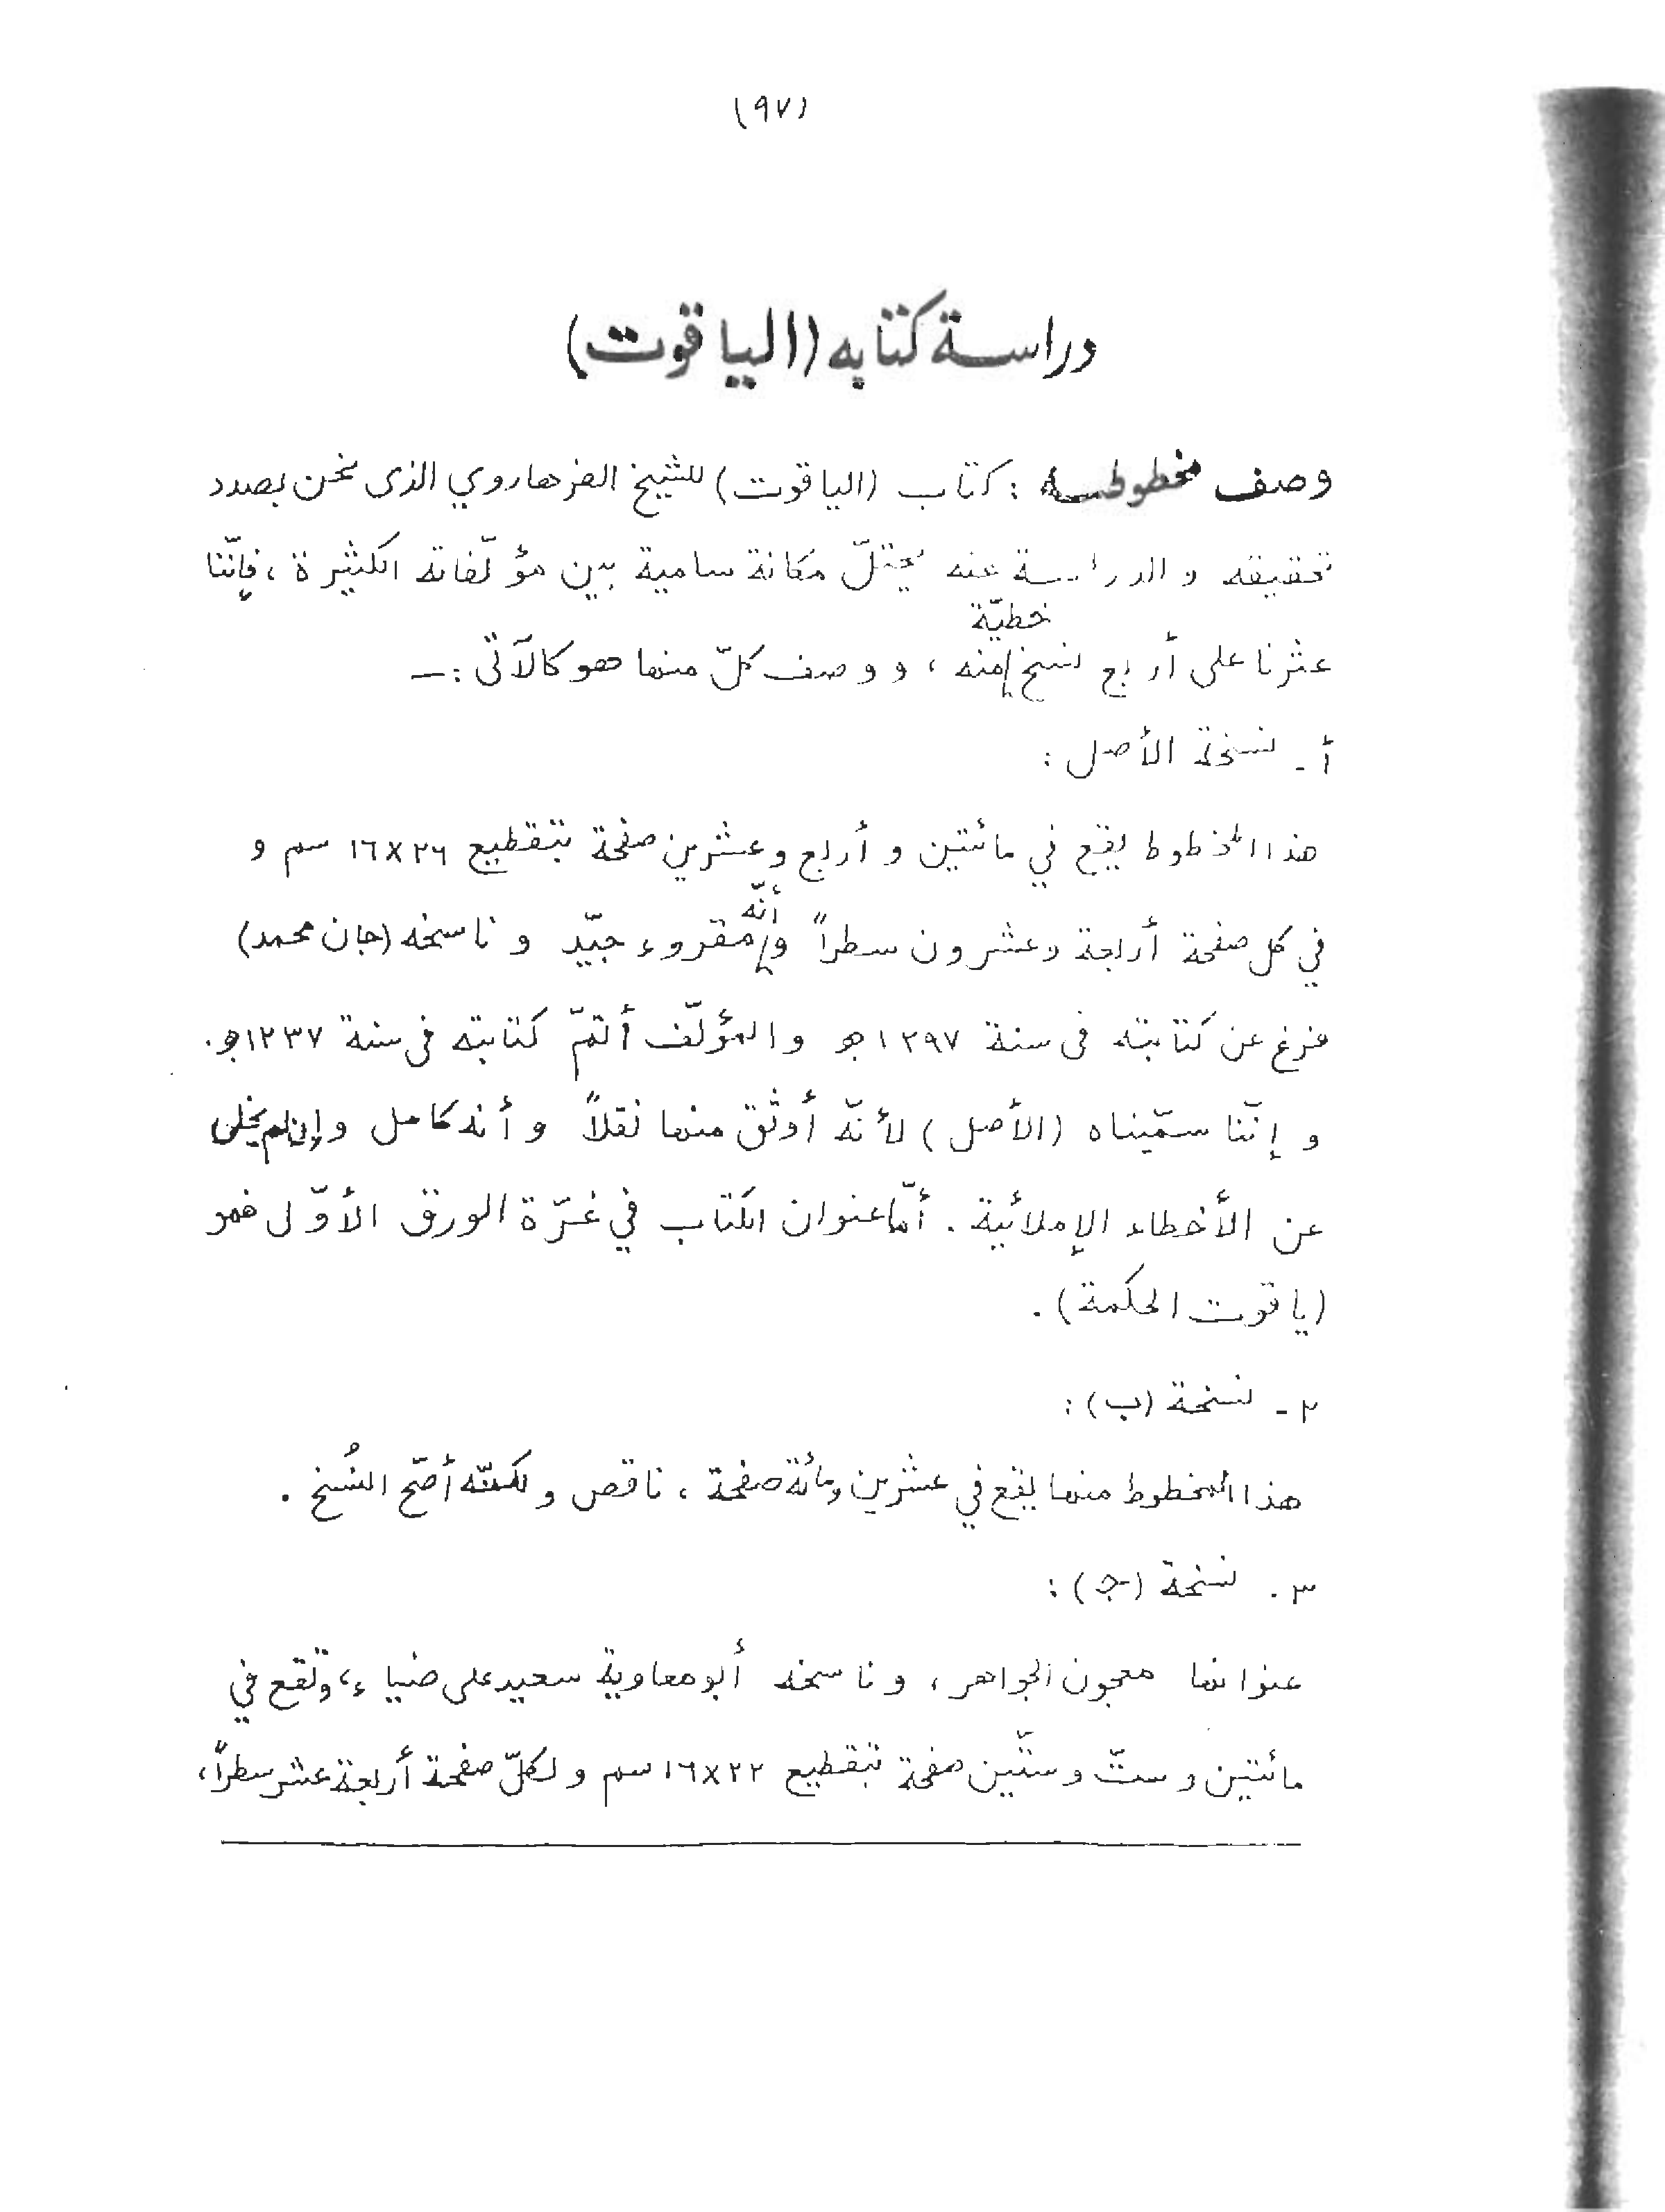 (٩٧)
دراسة كتابه (الياقوت)
وصف مخطوطه : كتاب (الياقوت) للشيخ الفرهاروي الذى نحن بصدد
تحقيقه والدراسة عنه يحتلّ مكانة سامية بين مؤلّفاته الكثيرة ، فإنّنا
خطيّة
عثرنا على أربع نسخ منه ، و وصف كلّ منها هو كالآتى :ـ
أ ـ نسخة الأصل :
هذا المخطوط يقع في مائتين و أربع وعشرين صفحة بتقطيع ٢٦×١٦ سم و
أنّه
في كل صفحة أربعة وعشرون سطراً و مقروء جيّد و ناسخه (جان محمد)
فرغ عن كتابته فى سنة ١٢٩٧ هـ و المؤلّف أتمّ كتابته فى سنة ١٢٣٧هـ.
و إنّنا سمّيناه (الأصل) لأنّه أوثق منها نقلاً و أنه كامل وإن لم يخل
عن الأخطاء الإملائية . أمّا عنوان الكتاب في غرّة الورق الأوّل فهو
(ياقوت الحكمة) .
٢ ـ نسخة (ب) :
هذا المخطوط منها يقع في عشرين ومائة صفحة ، ناقص و لكنّه أصحّ النُسخ .
٣ . نسخة (ج) :
عنوانها معجون الجواهر ، و ناسخه أبومعاوية سعيد على ضياء ، وتقع في
مائتين و ستّ و ستّين صفحة بتقطيع ٢٢×١٦ سم و لكلّ صفحة أربعة عشر سطراً ،